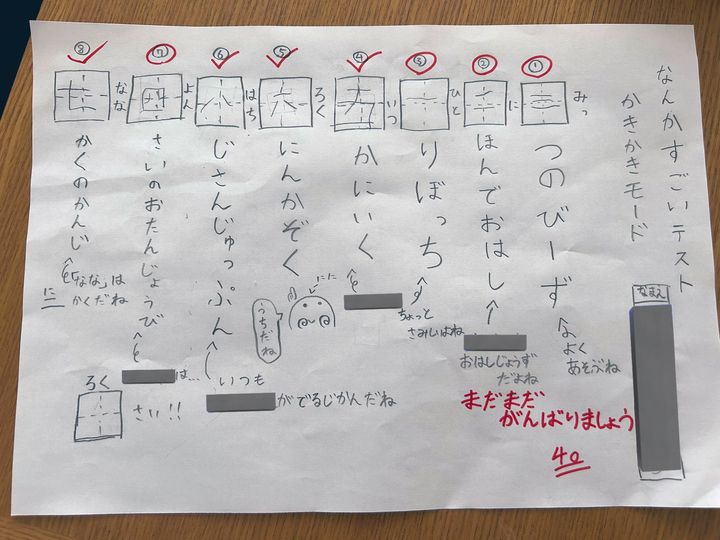 なんかすごいテスト
かきかきモード
なまえ
①
みっ
三
つのびーず
よく
あそぶね
②
に
ほんでおはし
おはしじょうず
だよね
③
ひと
一
りぼっち
ちょっと
さみしいはね
④
いつ
五
かにいく
⑤
ろく
六
にんかぞく
にこ
うちだね
⑥
はち
八
じさんじゅっぷん
いつも
がでるじかんだね
⑦
よん
四
さいのおたんじょうび
は…
ろく
さい!!
⑧
なな
七
かくのかんじ
「なな」は
にかくだね
まだまだ
がんばりましょう
40